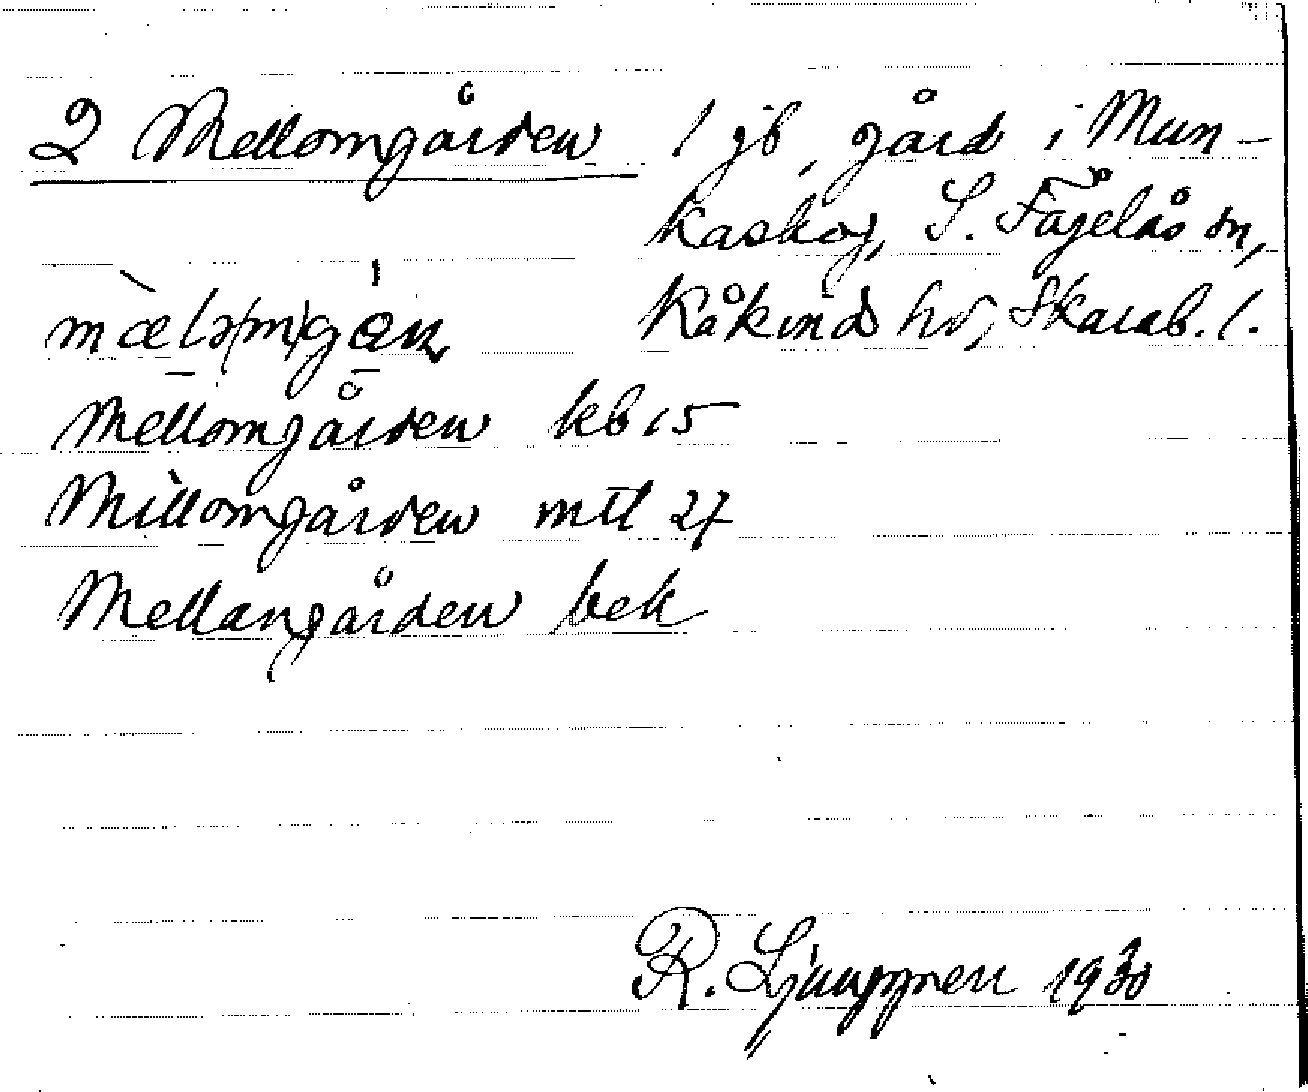 2 Mellomgården 1 jb, gård i Mun-
kaskog, S. Fågelås sn,
Kåkind hd, Skarab. l.
mælə(m)gɑn
Mellomgården kb 15
Millomgården mtl 27
Mellangården bek
R. Ljunggren 1930